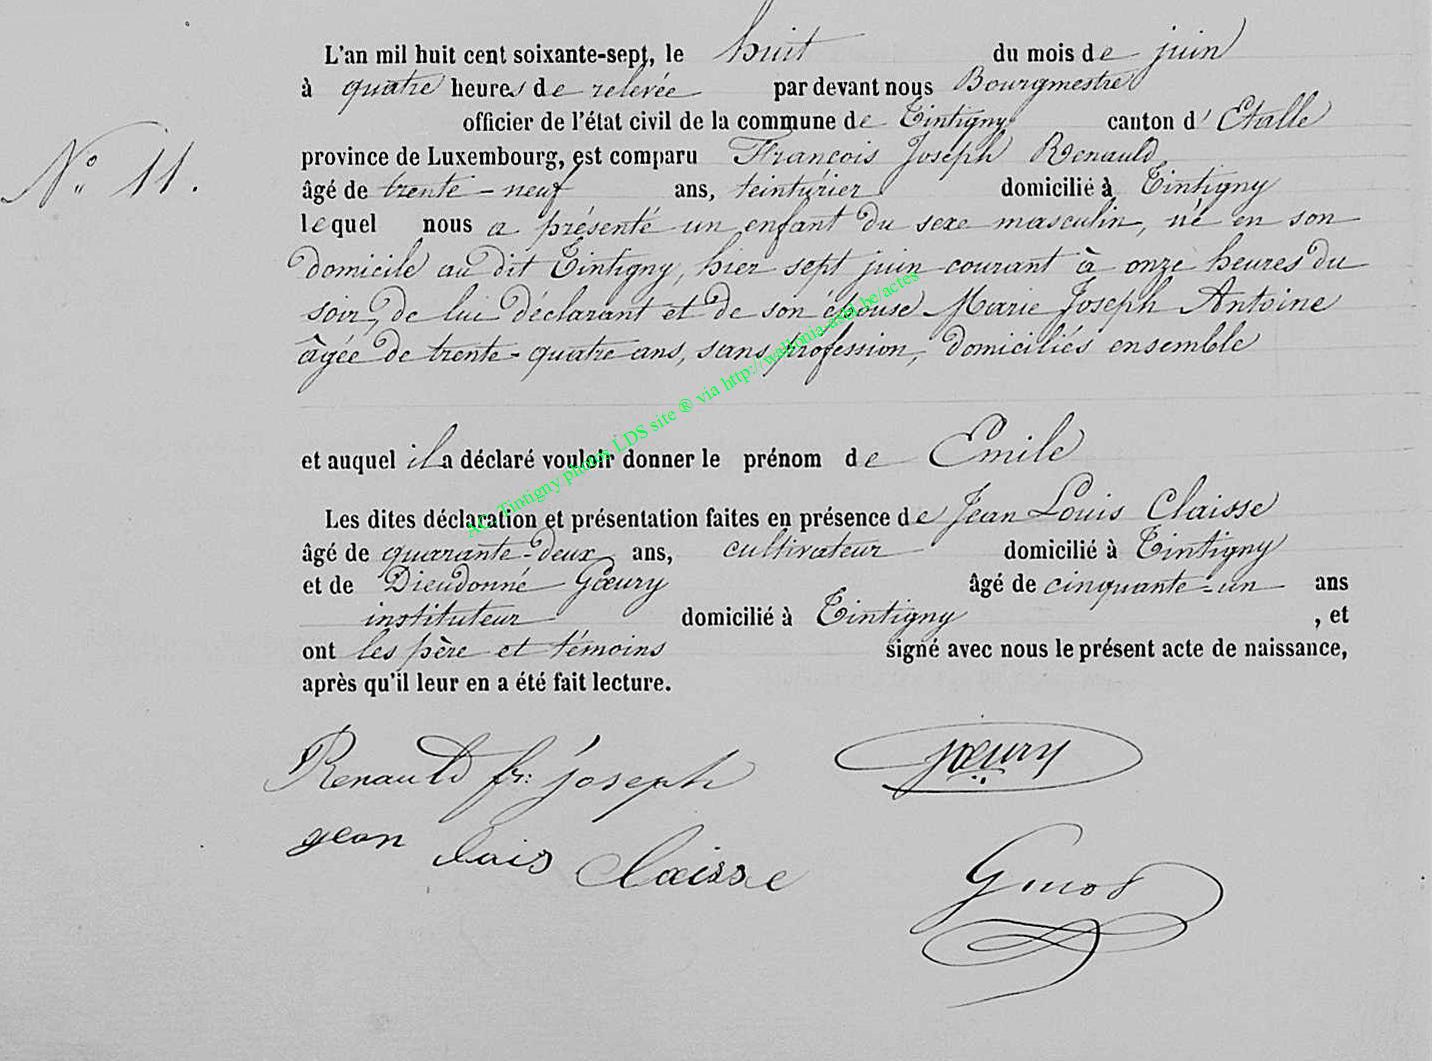 L'an mil huit cent soixante-sept, le huit du mois de juin
à quatre heures de relevée par devant nous Bourgmestre
officier de l'état civil de la commune de Tintigny canton d' Etalle
N° 11.
province de Luxembourg, est comparu François Joseph Renauld
âgé de trente-neuf ans, teinturier domicilié à Tintigny
lequel nous a présenté un enfant du sexe masculin, né en son
domicile au dit Tintigny, hier sept juin courant à onze heures du
soir, de lui déclarant et de son épouse Marie Joseph Antoine
âgée de trente-quatre ans, sans profession, domiciliés ensemble
et auquel il a déclaré vouloir donner le prénom de Emile
AC. Tintigny photos LDS site ® via http://wallonia-asbl.be/actes
Les dites déclaration et présentation faites en présence de Jean Louis Claisse
âgé de quarante-deux ans, cultivateur domicilié à Tintigny
et de Dieudonné Gœury âgé de cinquante-un ans
instituteur domicilié à Tintigny , et
ont les père et témoins signé avec nous le présent acte de naissance,
après qu'il leur en a été fait lecture.
Renauld fr: joseph gœury
jean louis Claisse